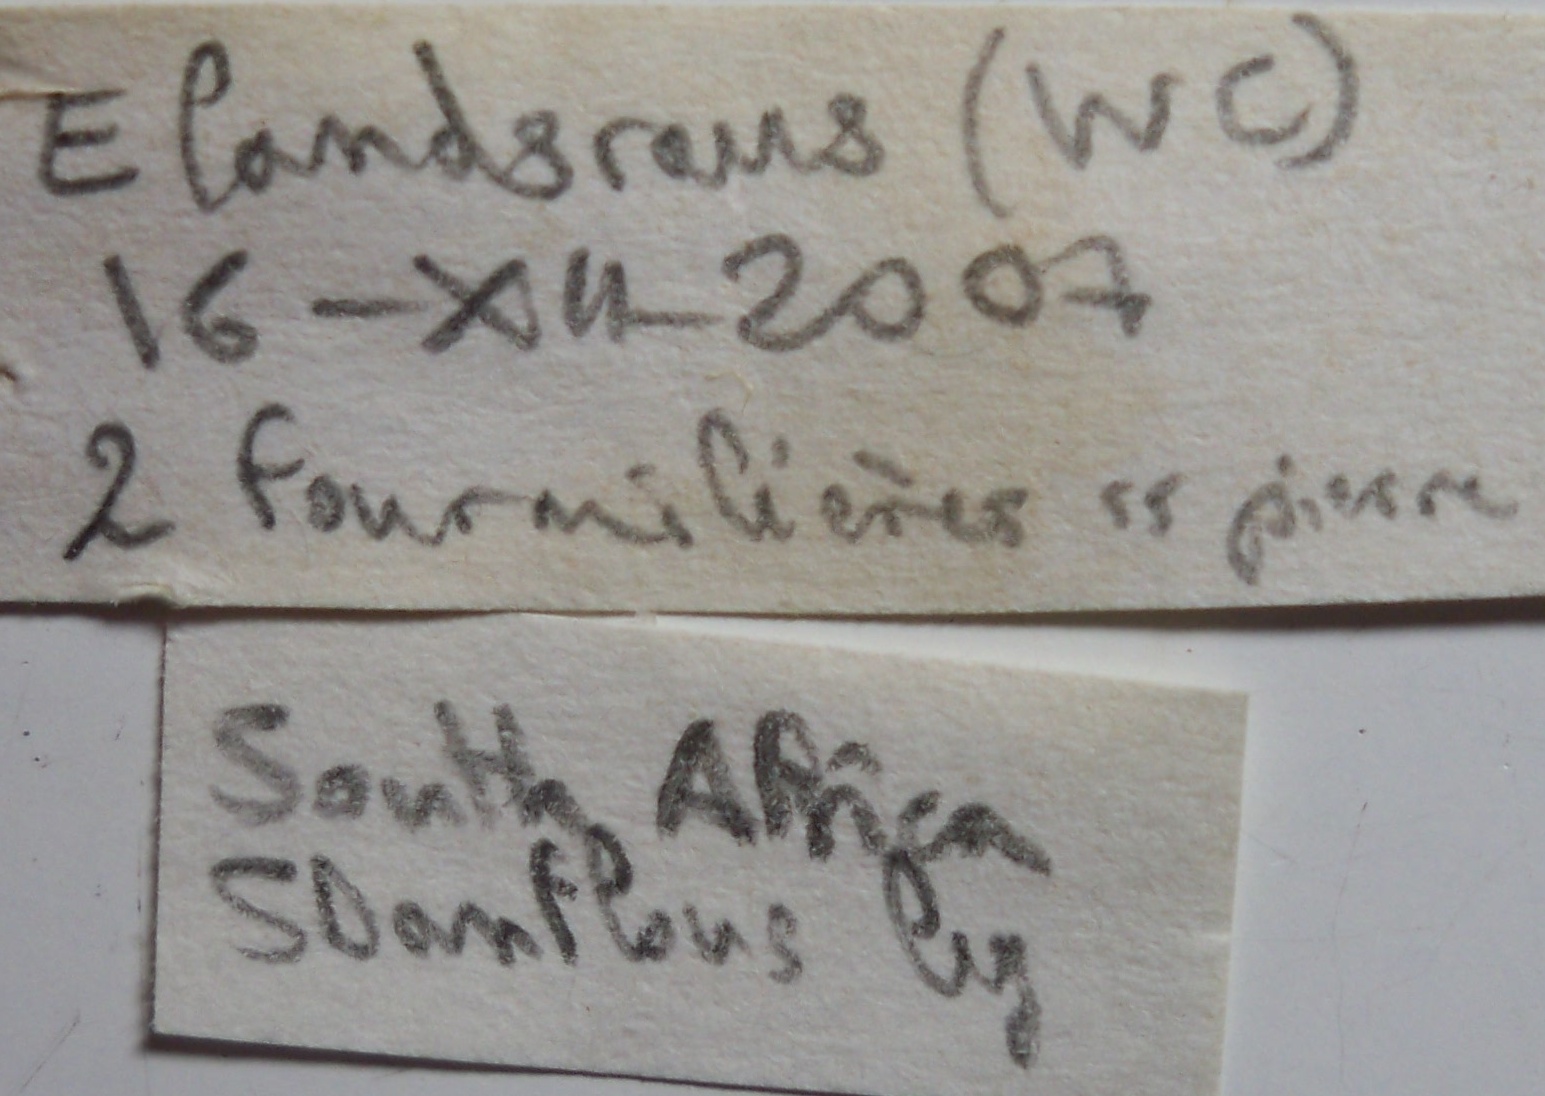 Elandsreus (WC)
16-XII-2007
2 fourmilières ss pierre
South Africa
S Danflous leg